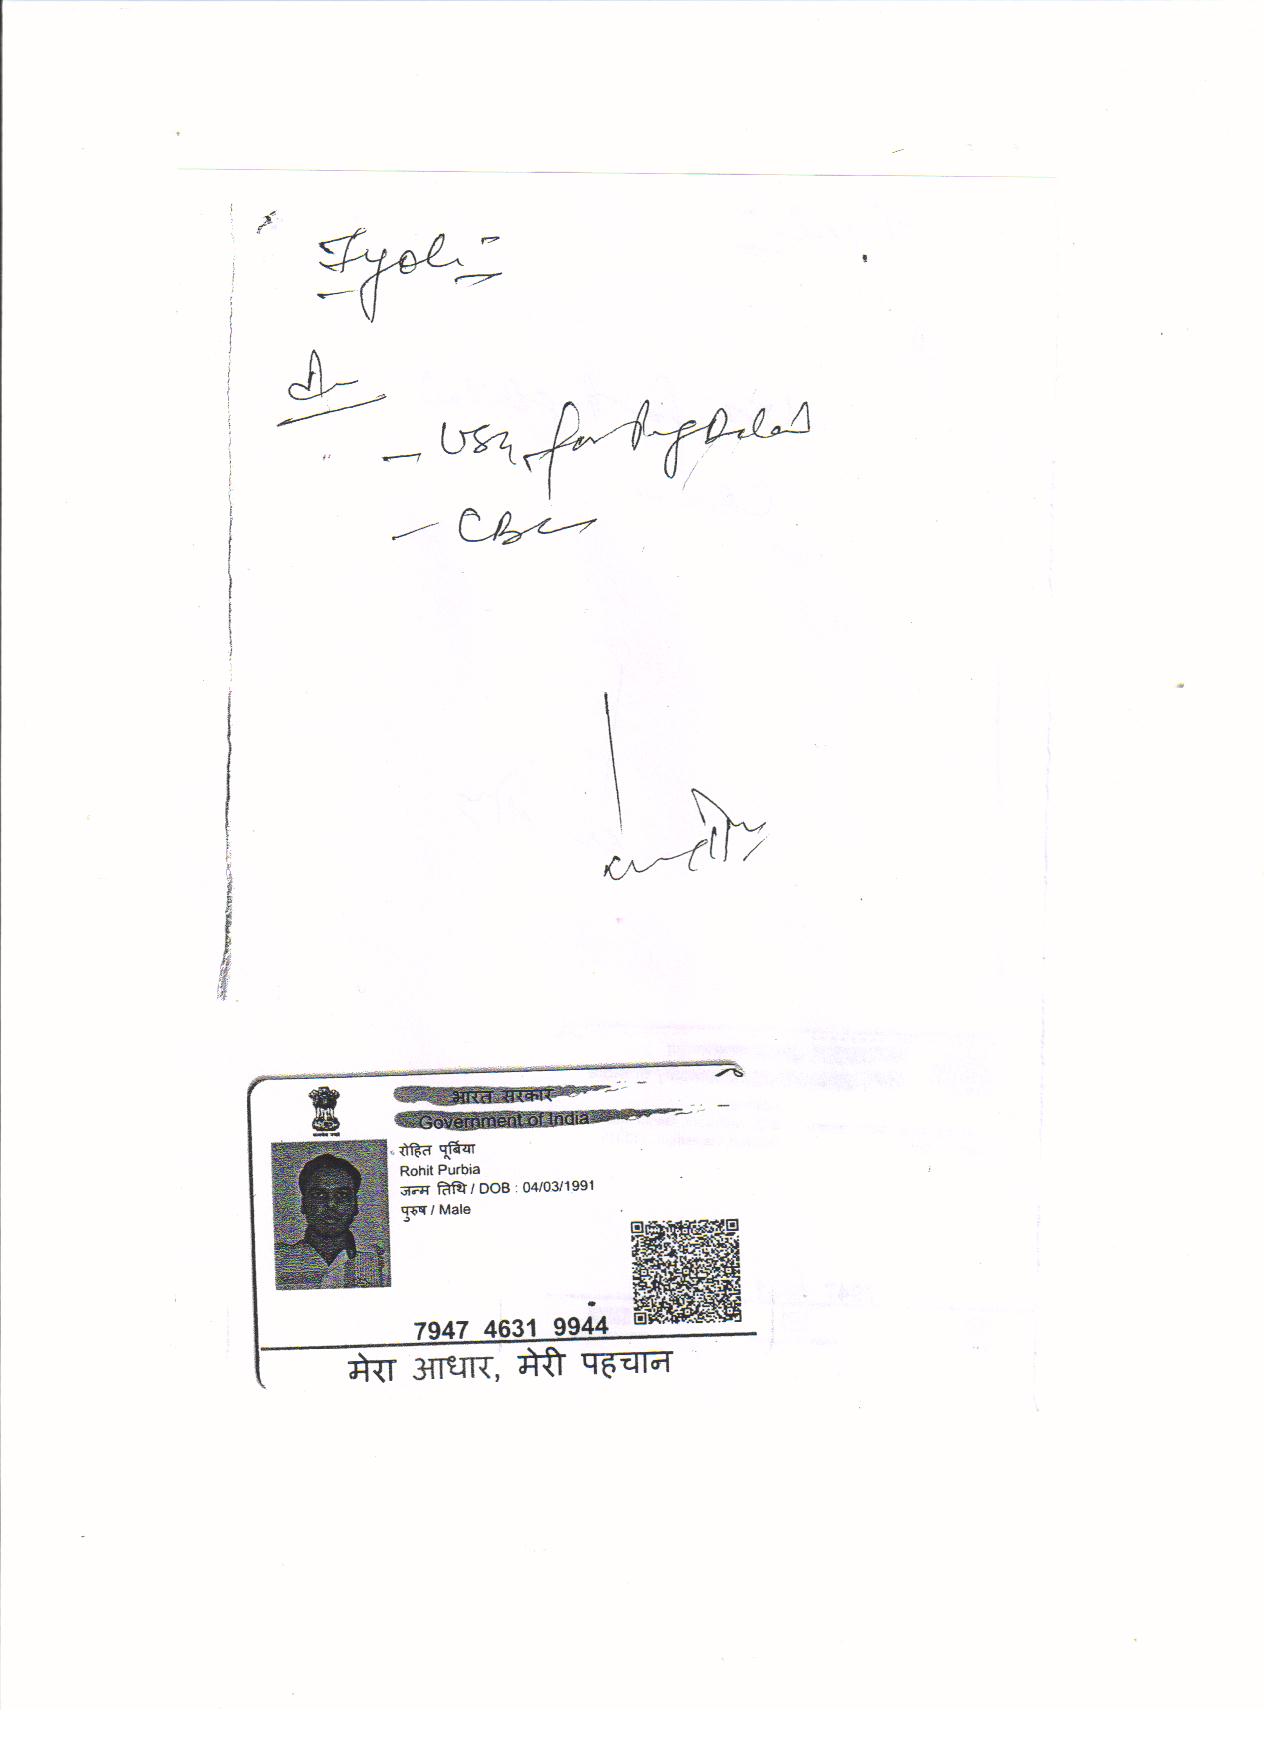 Jyoti
- USG
- CBC
भारत सरकार
Government of India
रोहित पूर्बिया
Rohit Purbia
जन्म तिथि / DOB : 04/03/1991
पुरुष / Male
7947 4631 9944
मेरा आधार, मेरी पहचान